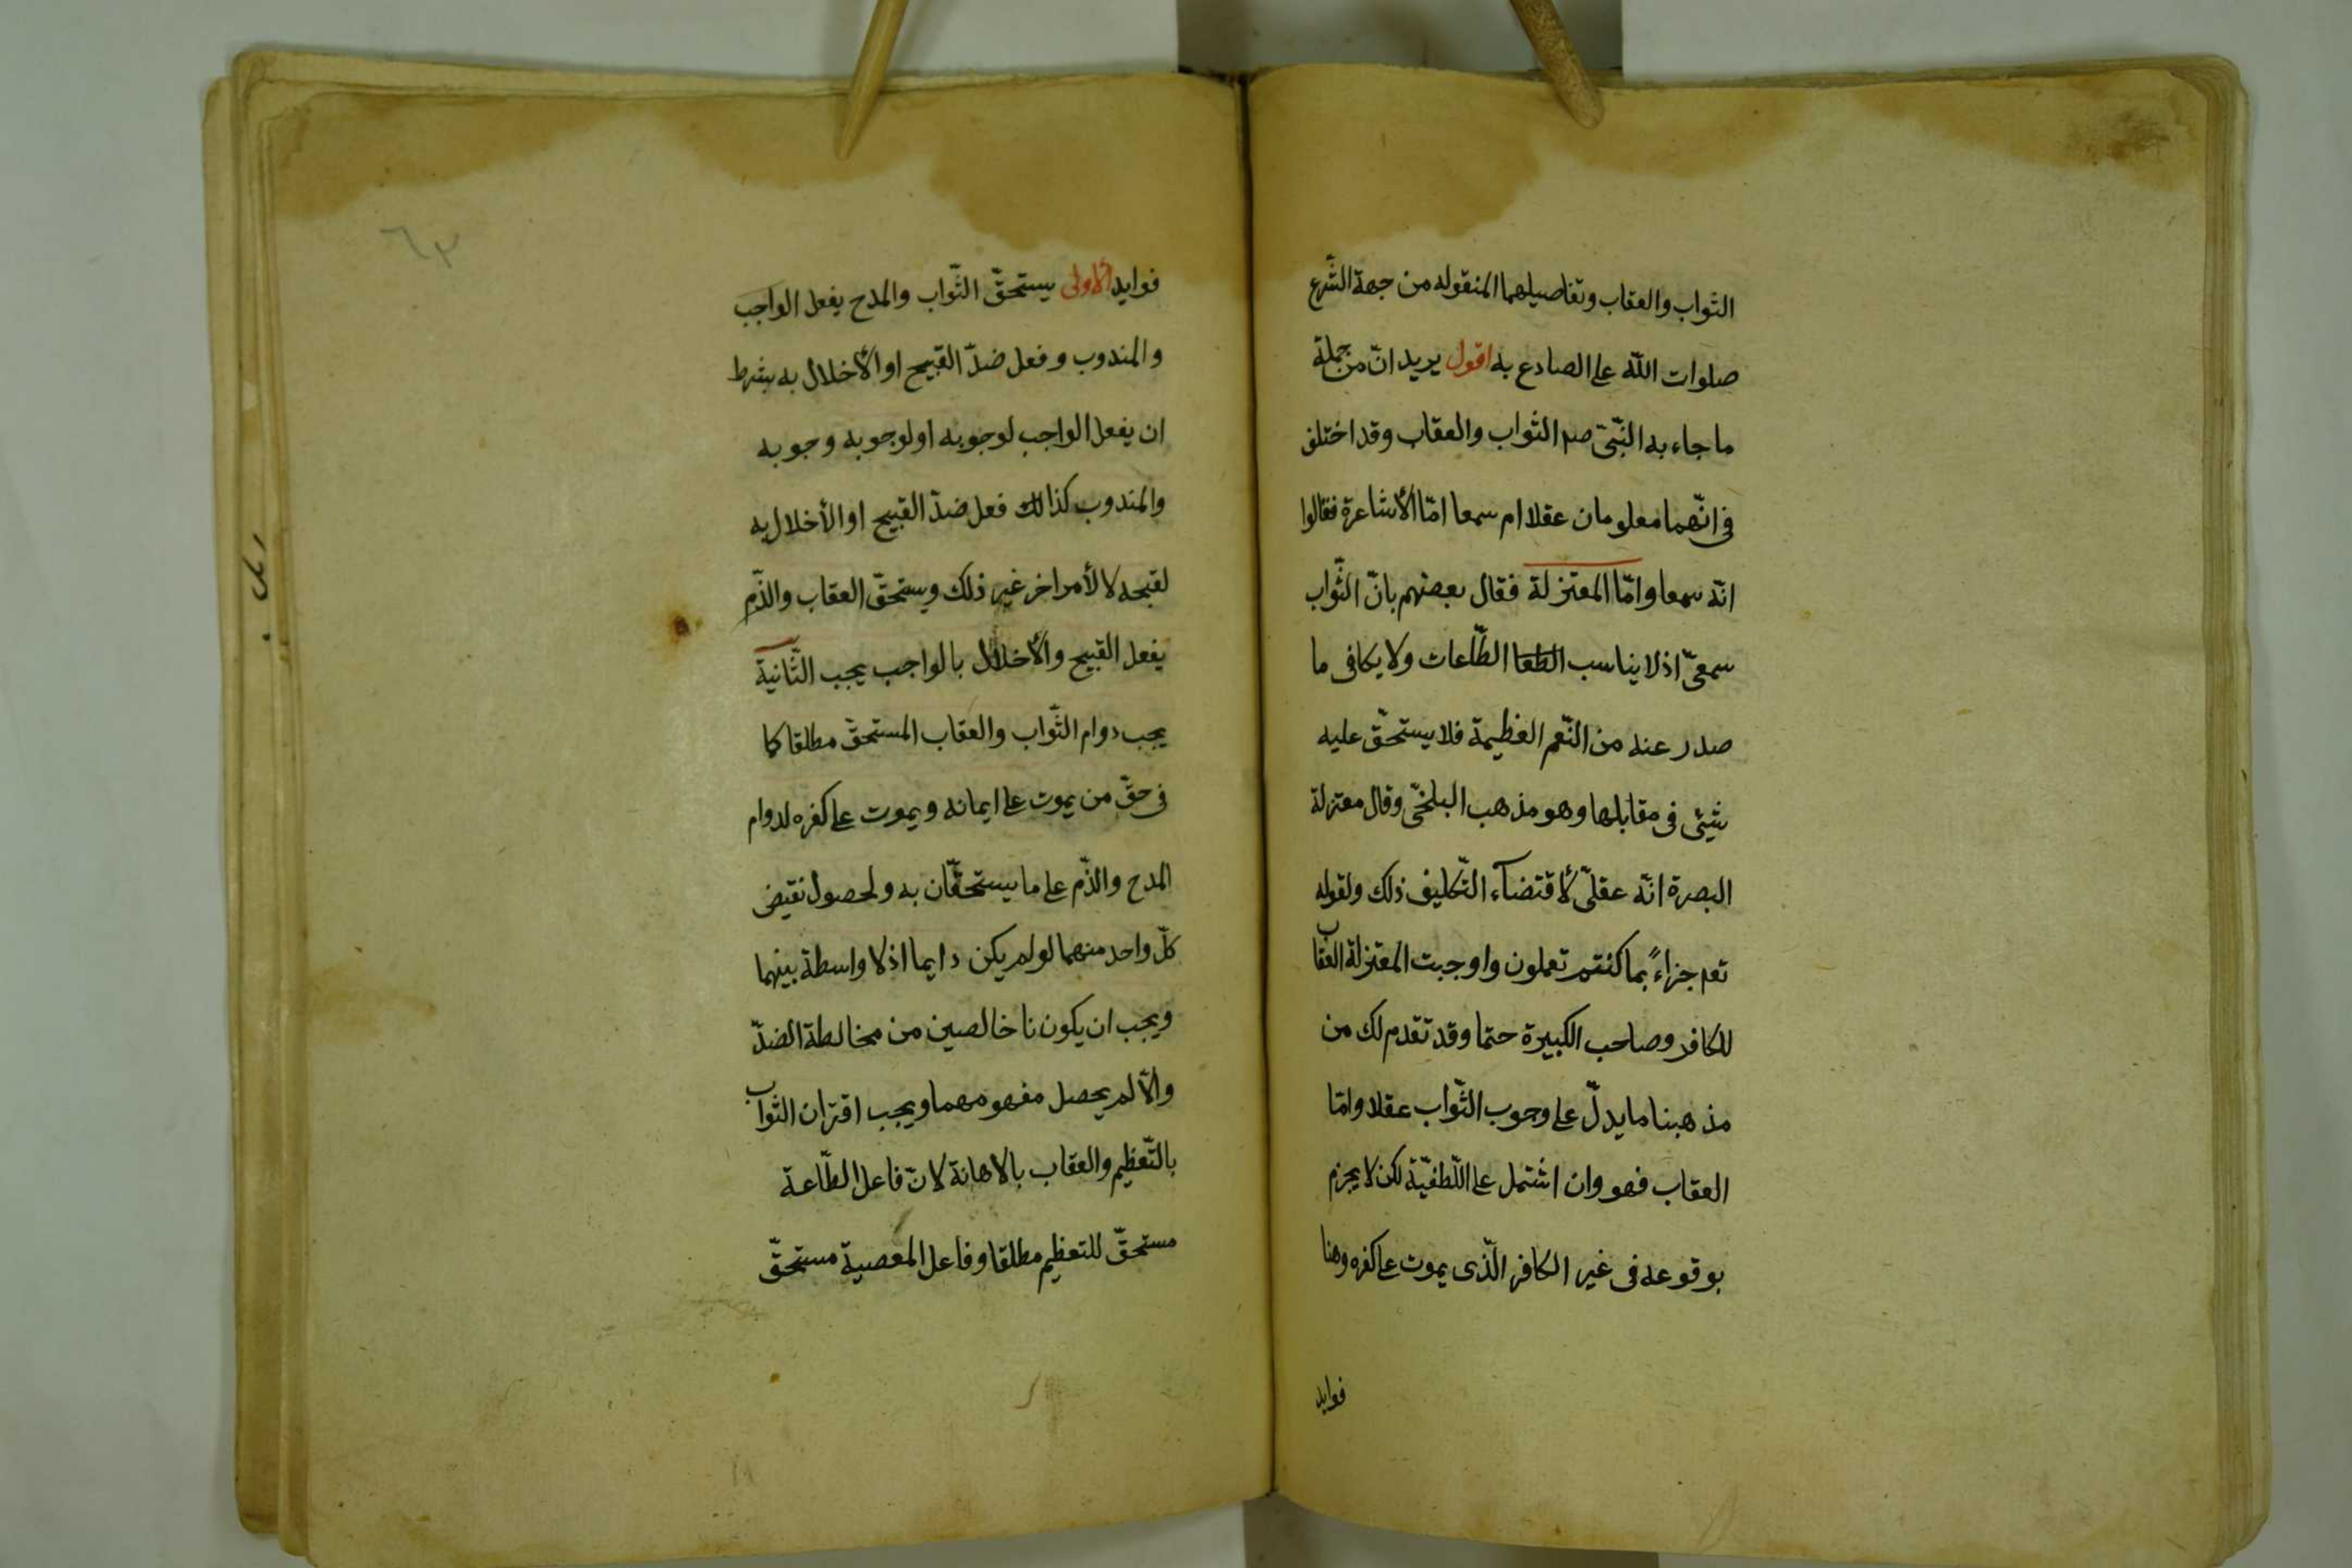 الثواب والعقاب وتفاصيلهما المنقوله من جهة الشّرع
صلوات اللّه على الصادع به اقول يريد انّ من جملة
ما جاء به النّبىّ صم الثواب والعقاب وقد اختلف
فى انّهما معلومان عقلا ام سمعا امّا الأشاعرة فقالوا
انّه سمعا وامّا المعتزلة فقال بعضهم بانّ الثّواب
سمعىّ اذ لا يناسب الطعا الطّاعات ولا يكافى ما
صدر عنه من النّعم العظيمة فلا يستحقّ عليه
شيئى فى مقابلها وهو مذهب البلخىّ وقال معتزلة
البصرة انّه عقلىّ لأقتضآء التّكليف ذلك ولقوله
تعم جزاءً بما كنتم تعملون واوجبت المعتزلة العقاب
للكافر وصاحب الكبيرة حتما وقد تقدم لك من
مذهبنا ما يدلّ على وجوب الثّواب عقلا وامّا
العقاب فهو وان اشتمل على اللّطفيّة لكن لا يجزم
بوقوعه فى غير الكافر الّذى يموت على كفره وهنا
فوايد
٦٣
فوايد الأولى يستحقّ الثّواب والمدح يفعل الواجب
والمندوب وفعل ضدّ القبيح او الأخلال به بشرط
ان يفعل الواجب لوجوبه او لوجوبه وجوبه
والمندوب كذالك فعل ضدّ القبيح او الأخلال به
لقبحه لا لأمر اخر غير ذلك ويستحقّ العقاب والذّم
يفعل القبيح والأخلال بالواجب يجب الثّانية
يجب دوام الثّواب والعقاب المستحقّ مطلقا كما
فى حقّ من يموت على ايمانه ويموت على كفره لدوام
المدح والذّم على ما يستحقّان به ولحصول نقيض
كلّ واحد منهما لو لم يكن دايما اذ لا واسطة بينهما
ويجب ان يكونا خالصين من مخالطة الضدّ
والّا لم يحصل مفهومهما ويجب اقتران الثواب
بالتّعظيم والعقاب بالاهانة لانّ فاعل الطّاعة
مستحقّ للتعظيم مطلقا وفاعل المعصية مستحقّ